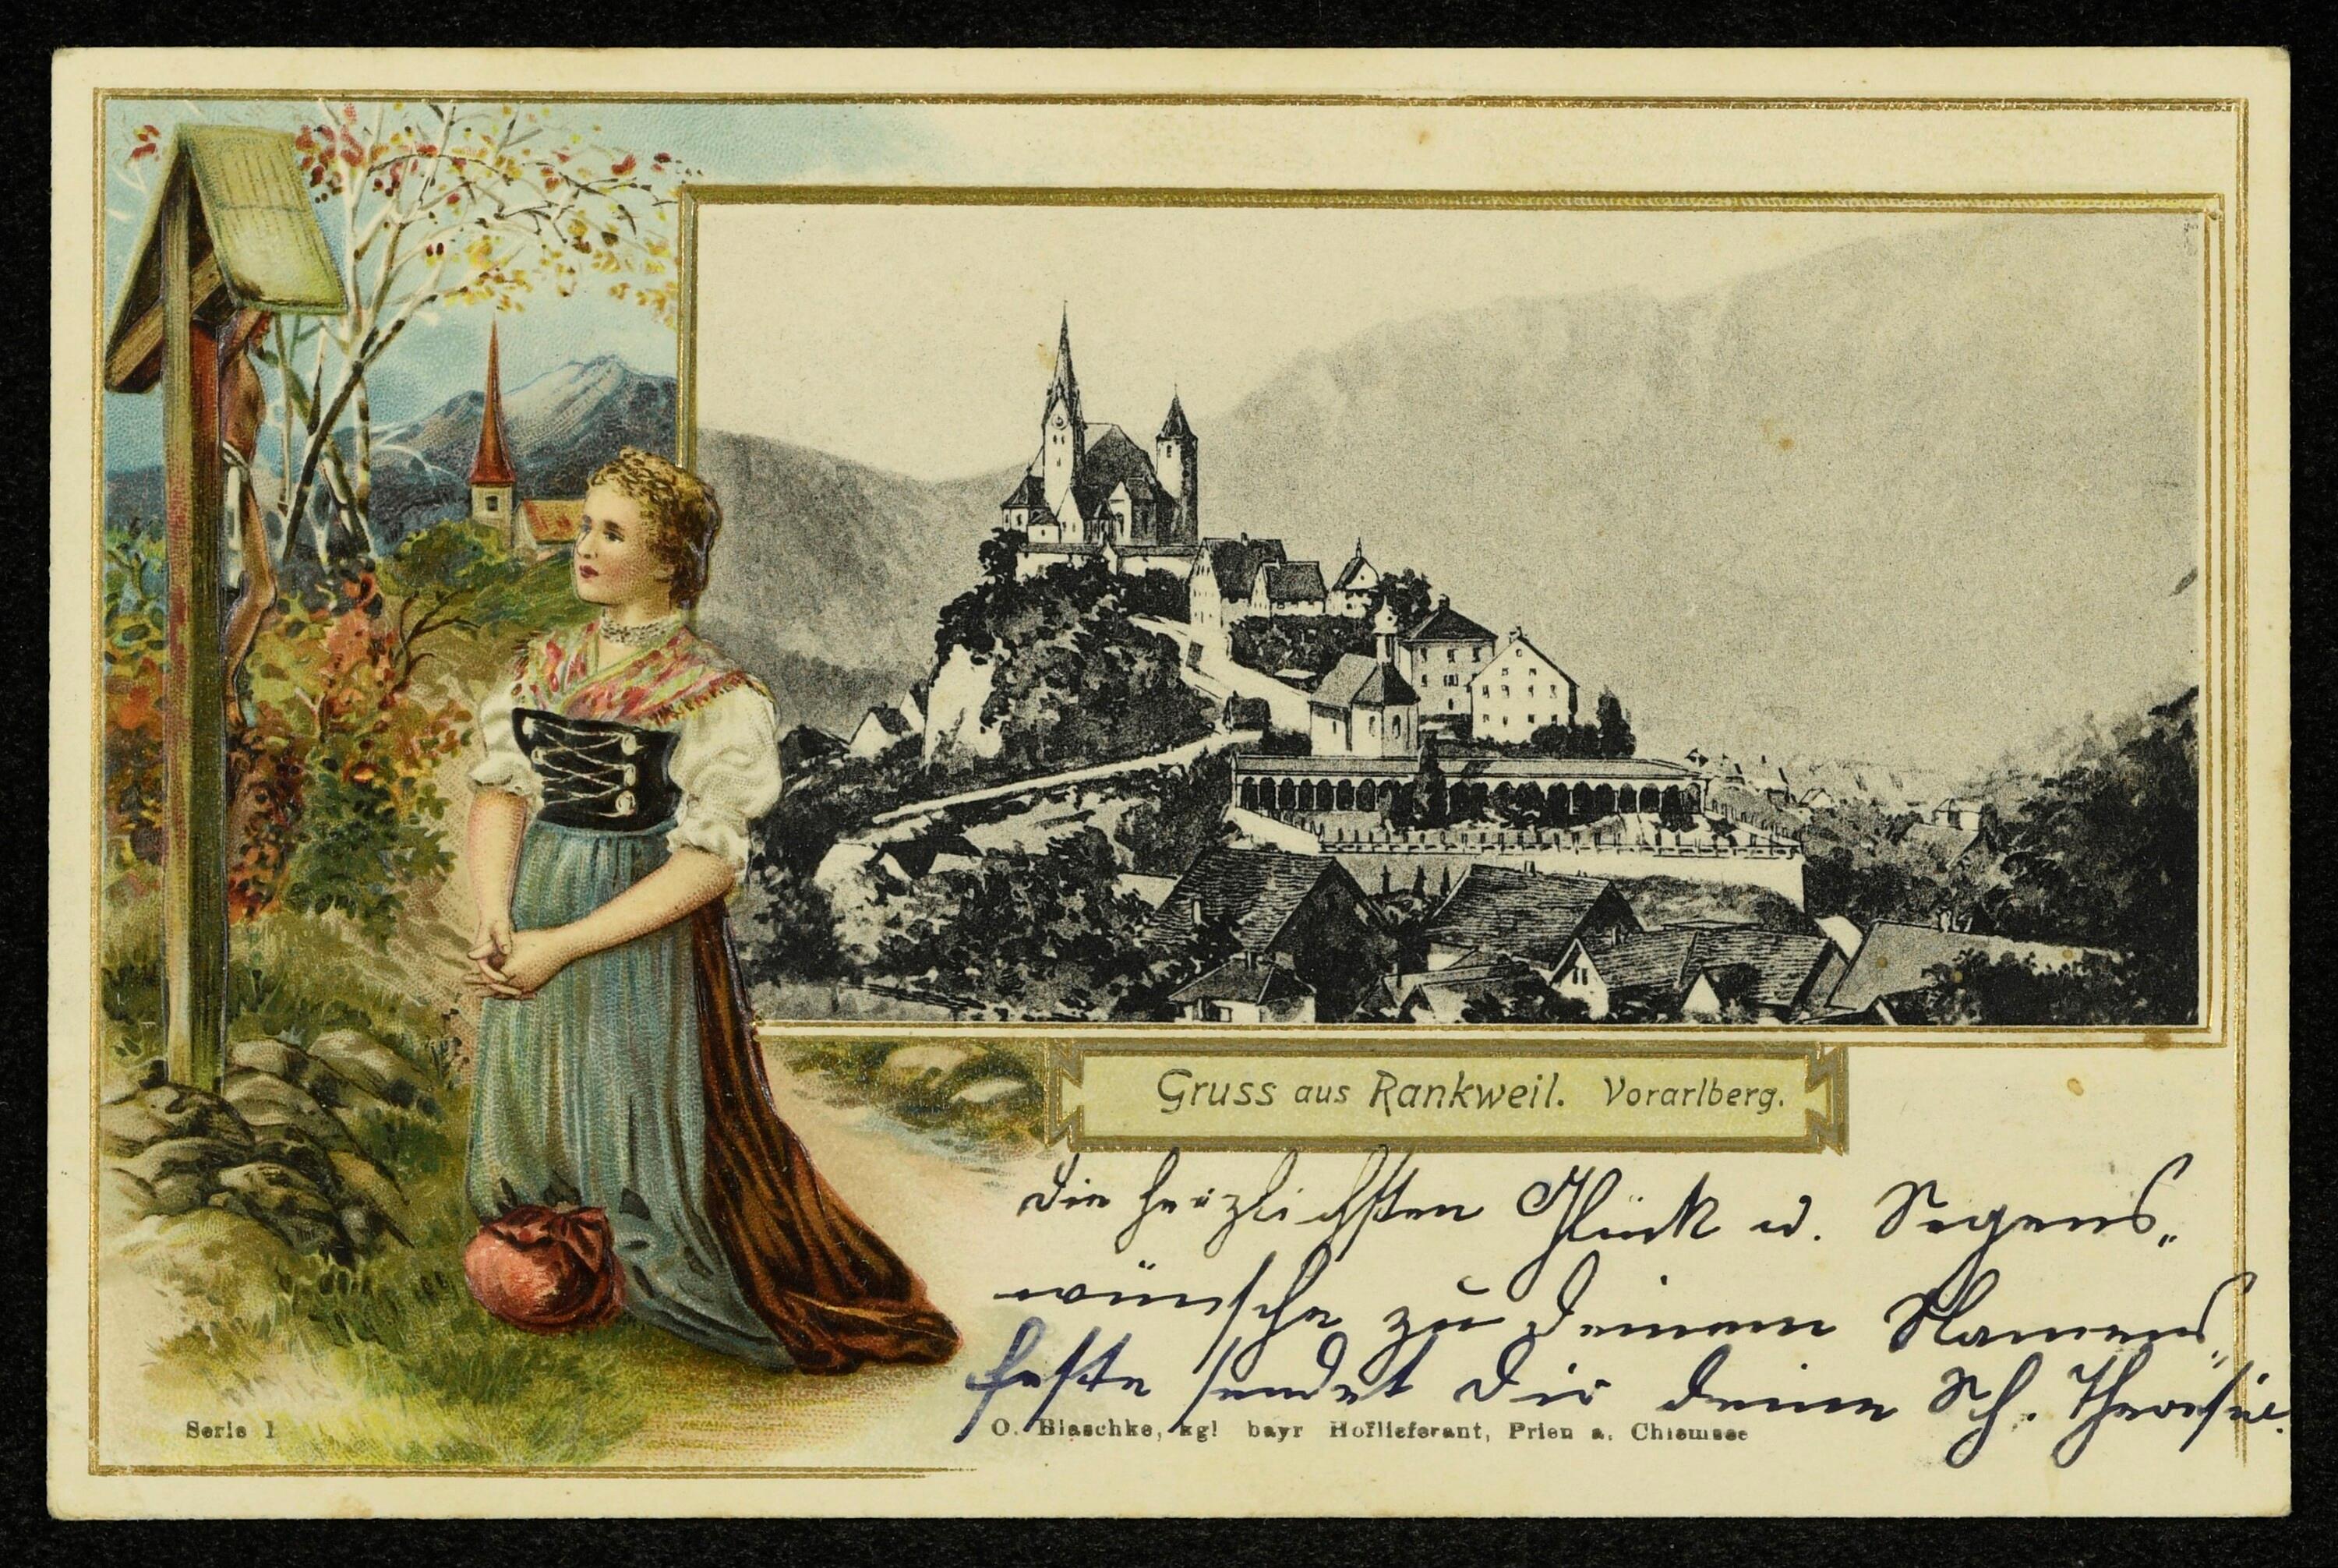 Gruss aus Rankweil. Vorarlberg.
Die herzlichsten Glück u. Segens„
wünsche zu deinem Namens„
feste sendet Dir deine Sch. Theresia.
Serie 1
O. Blaschke, kgl bayr Hoflieferant, Prien a. Chiemsee